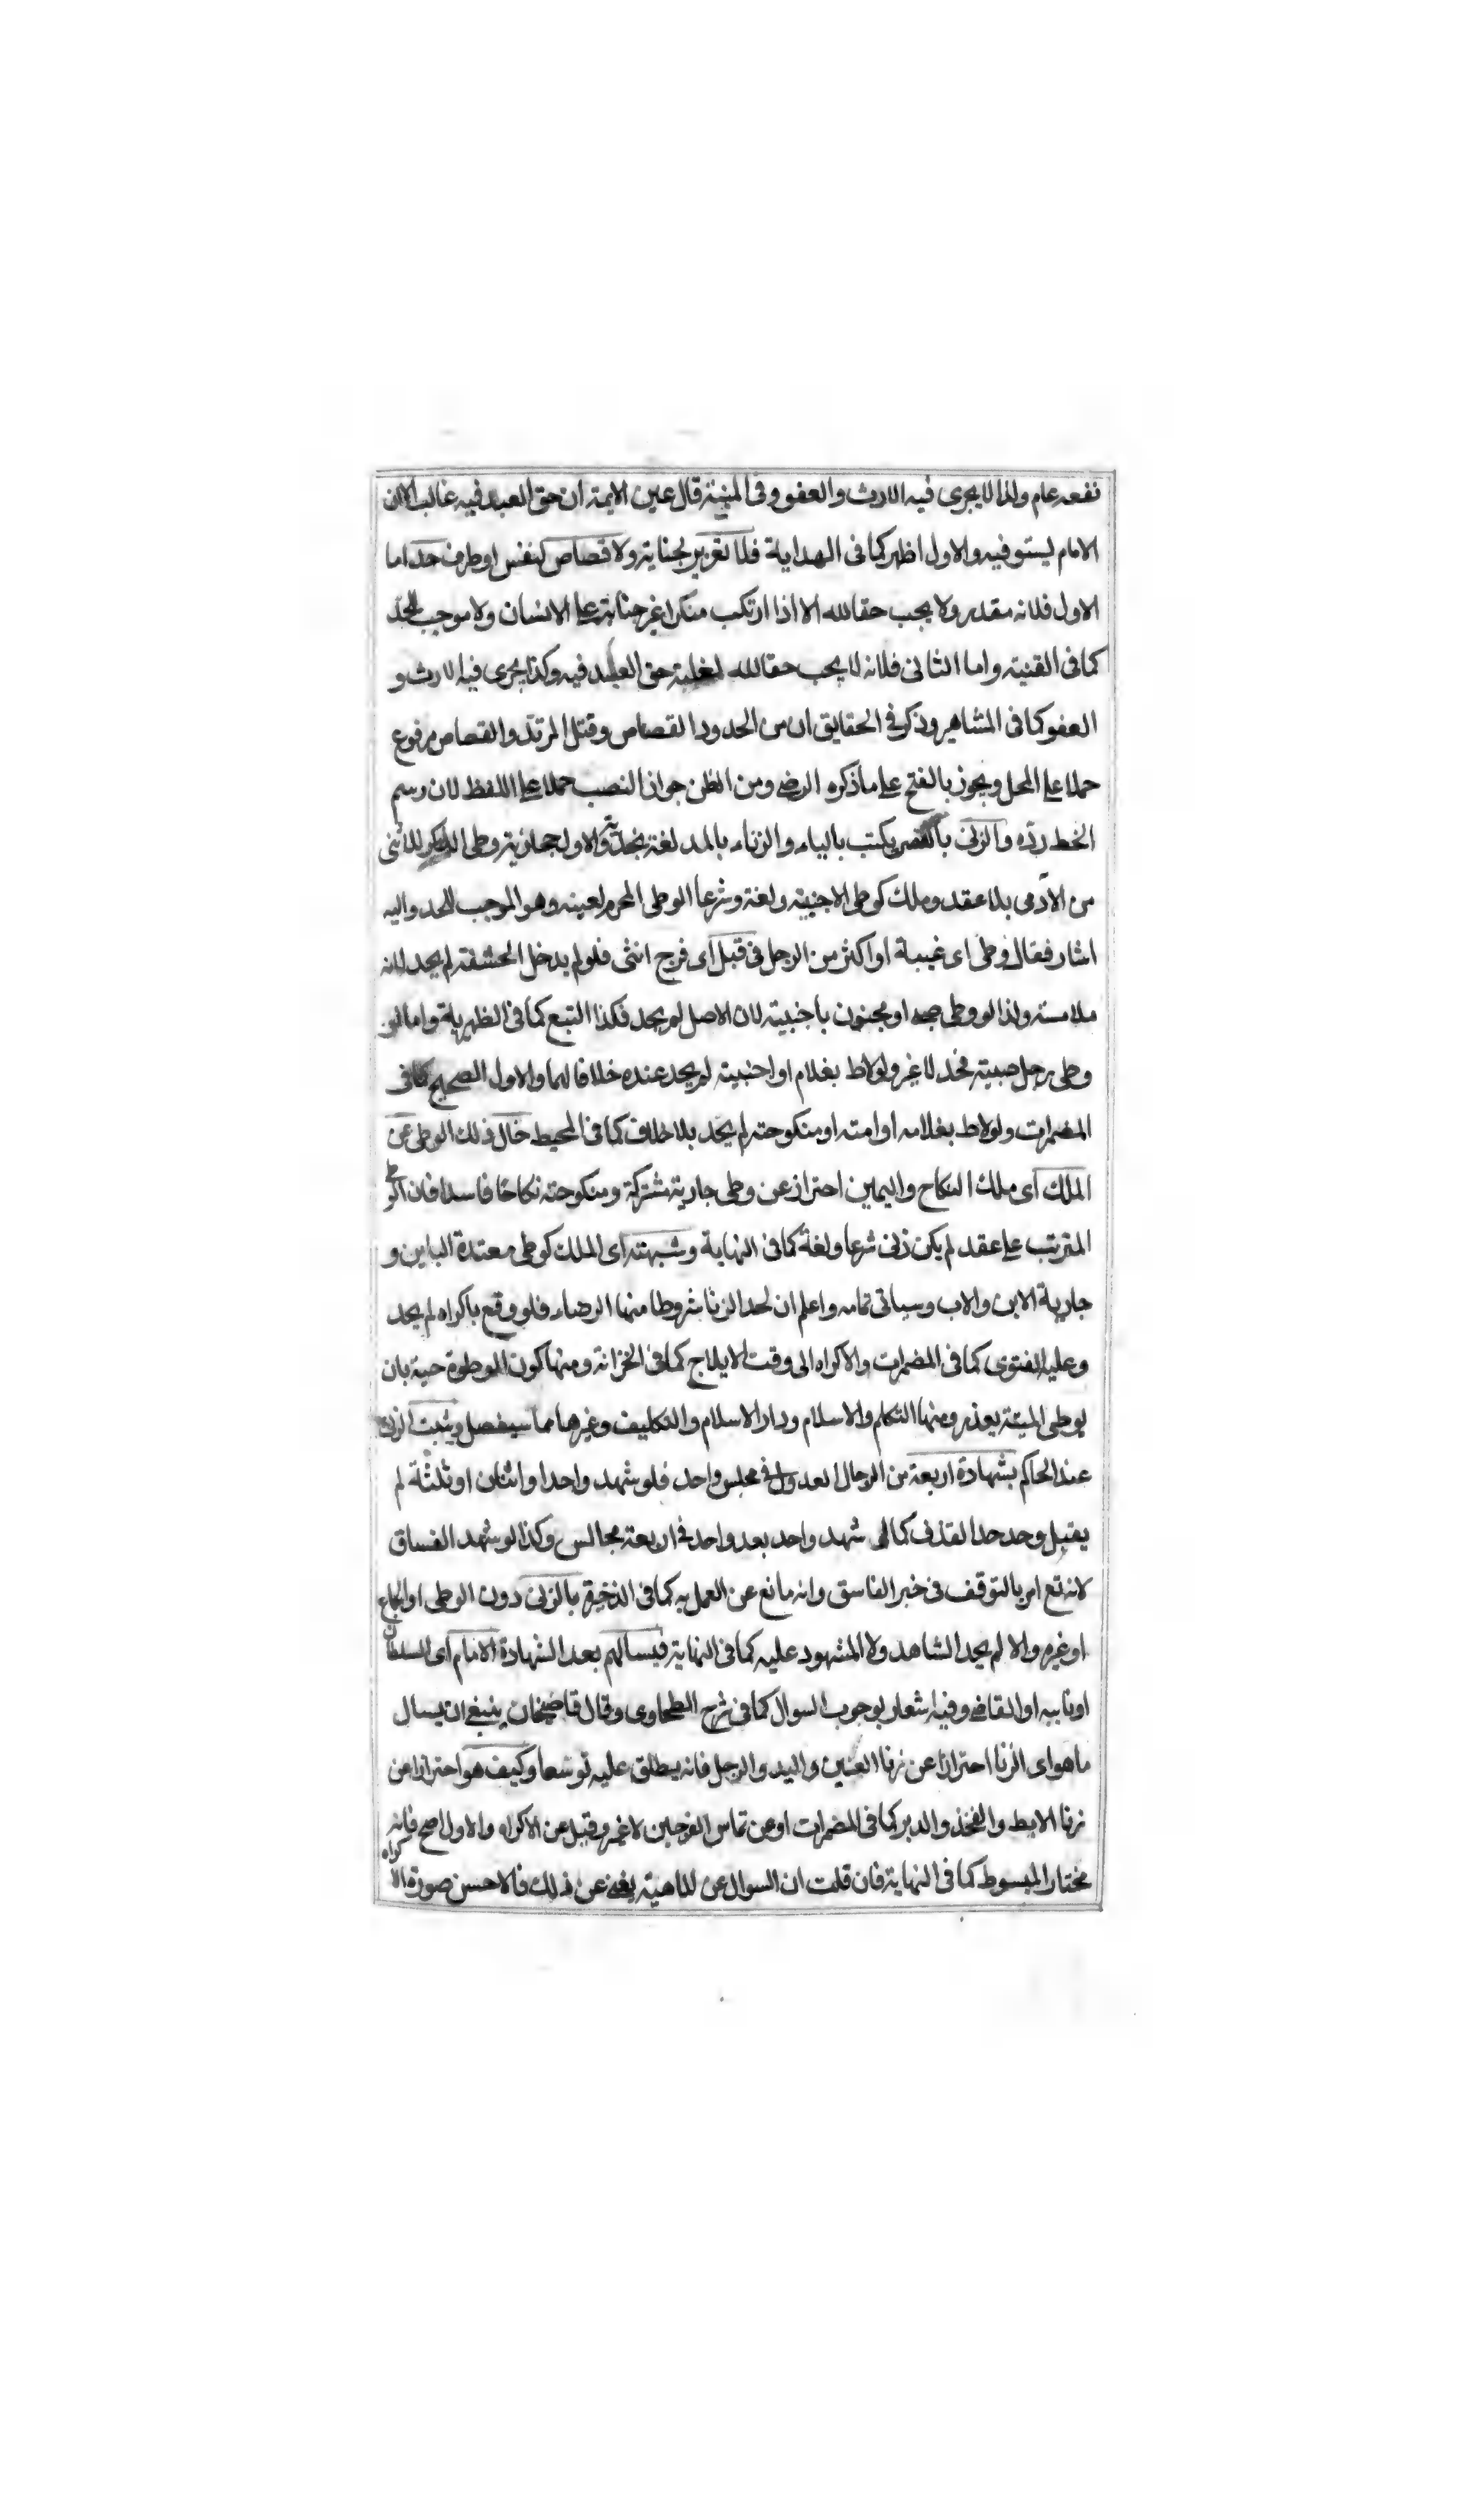 نفعه عام ولذا لا يجرى فيه الارث والعفو وفى المنية قال عين الايمة ان حق العبد فيه غالب الا ان
الامام يستوفيه والاول اظهر كما فى الهداية فلا تعزير لجناية ولا قصاص لنفس او طرف حد اما
الاول فلانه مقدر ولا يجب حقا لله الا اذا ارتكب منكرا غير جناية على الانسان ولا موجب للحد
كما فى القنية واما الثانى فلانه لا يجب حقا لله لغلبة حق العبد فيه وكذا يجرى فيه الارث و
العفو كما فى المشاهير وذكر فى الحقايق ان من الحدود القصاص وقتل المرتد والقصاص مرفوع
حملا على المحل ويجوز بالفتح على ما ذكره الرضى ومن الظن جواز النصب حملا على اللفظ لان رسم
الخط رده والزنى بالقصر يكتب بالياء والزناء بالمد لغة نجدية والاول حجازية وطى الذكر للانثى
من الآدمى بلا عقد وملك كوطى الاجنبية ولغة وشرعا الوطى المحرم لعينه وهو الموجب للحد واليه
اشار فقال وطى اى غيبة او اكثر من الرجل فى قبل اى فرج انثى فلو لم يدخل الحشفة لم يحد لانه
ملامسة ولذا لو وطى صبى او مجنون باجنبية لان الاصل لم يحد فكذا التبع كما فى الظهيرية واما لو
وطى رجل صبية فحد لا غير ولو لاط بغلام او اجنبية لم يحد عنده خلافا لهما والاول الصحيح كما فى
المضمرات ولو لاط بغلامه او امته او منكوحته لم يحد بلا خلاف كما فى المحيط خال ذلك الوطى عن
الملك اى ملك النكاح واليمين احتراز عن وطى جارية مشتركة ومنكوحته نكاحا فاسدا فان الوطى
المترتب على عقد لم يكن زنى شرعا ولغة كما فى النهاية وشبهته اى الملك كوطى معتدة الباين و
جارية الابن والاب وسياتى تمامه واعلم ان لحد الزنا شروطا منها الرضاء فلو وقع باكراه لم يحد
وعليه الفتوى كما فى المضمرات والاكراه الى وقت الايلاج كما فى الخزانة ومنها كون الموطوة حية بان
بوطى الميتة يعذر ومنها التكلم والاسلام ودار الاسلام والتكليف وغيرها مما سيفصل ويثبت الزنى
عند الحاكم بشهادة اربعة من الرجال العدول فى مجلس واحد فلو شهد واحد او اثنان او ثلثة لم
يقبل وحد حد القذف كما لو شهد واحد بعد واحد فى اربعة مجالس وكذا لو شهد الفساق
لانه تع امر بالتوقف فى خبر الفاسق وانه مانع عن العمل به كما فى الذخيرة بالزنى دون الوطى او الجماع
او غيره والا لم يحد الشاهد ولا المشهود عليه كما فى النهاية فيسالهم بعد الشهادة الامام اى السلطان
او نايبه او القاضى وفيه اشعار بوجوب السوال كما فى شرح الطحاوى وقال قاضيخان ينبغى ان يسال
ما هو اى الزنا احترازا عن زنا العينين واليد والرجل فانه يطلق عليه توسعا وكيف هو احترازا من
زنا الابط والفخذ والدبر كما فى المضمرات او عن تماس الفرجين لا غير وقيل عن الاكراه والاول اصح فانه
مختار المبسوط كما فى النهاية فان قلت ان السوال عن الماهية يغنى عن ذلك فالاحسن صورة الاكراه